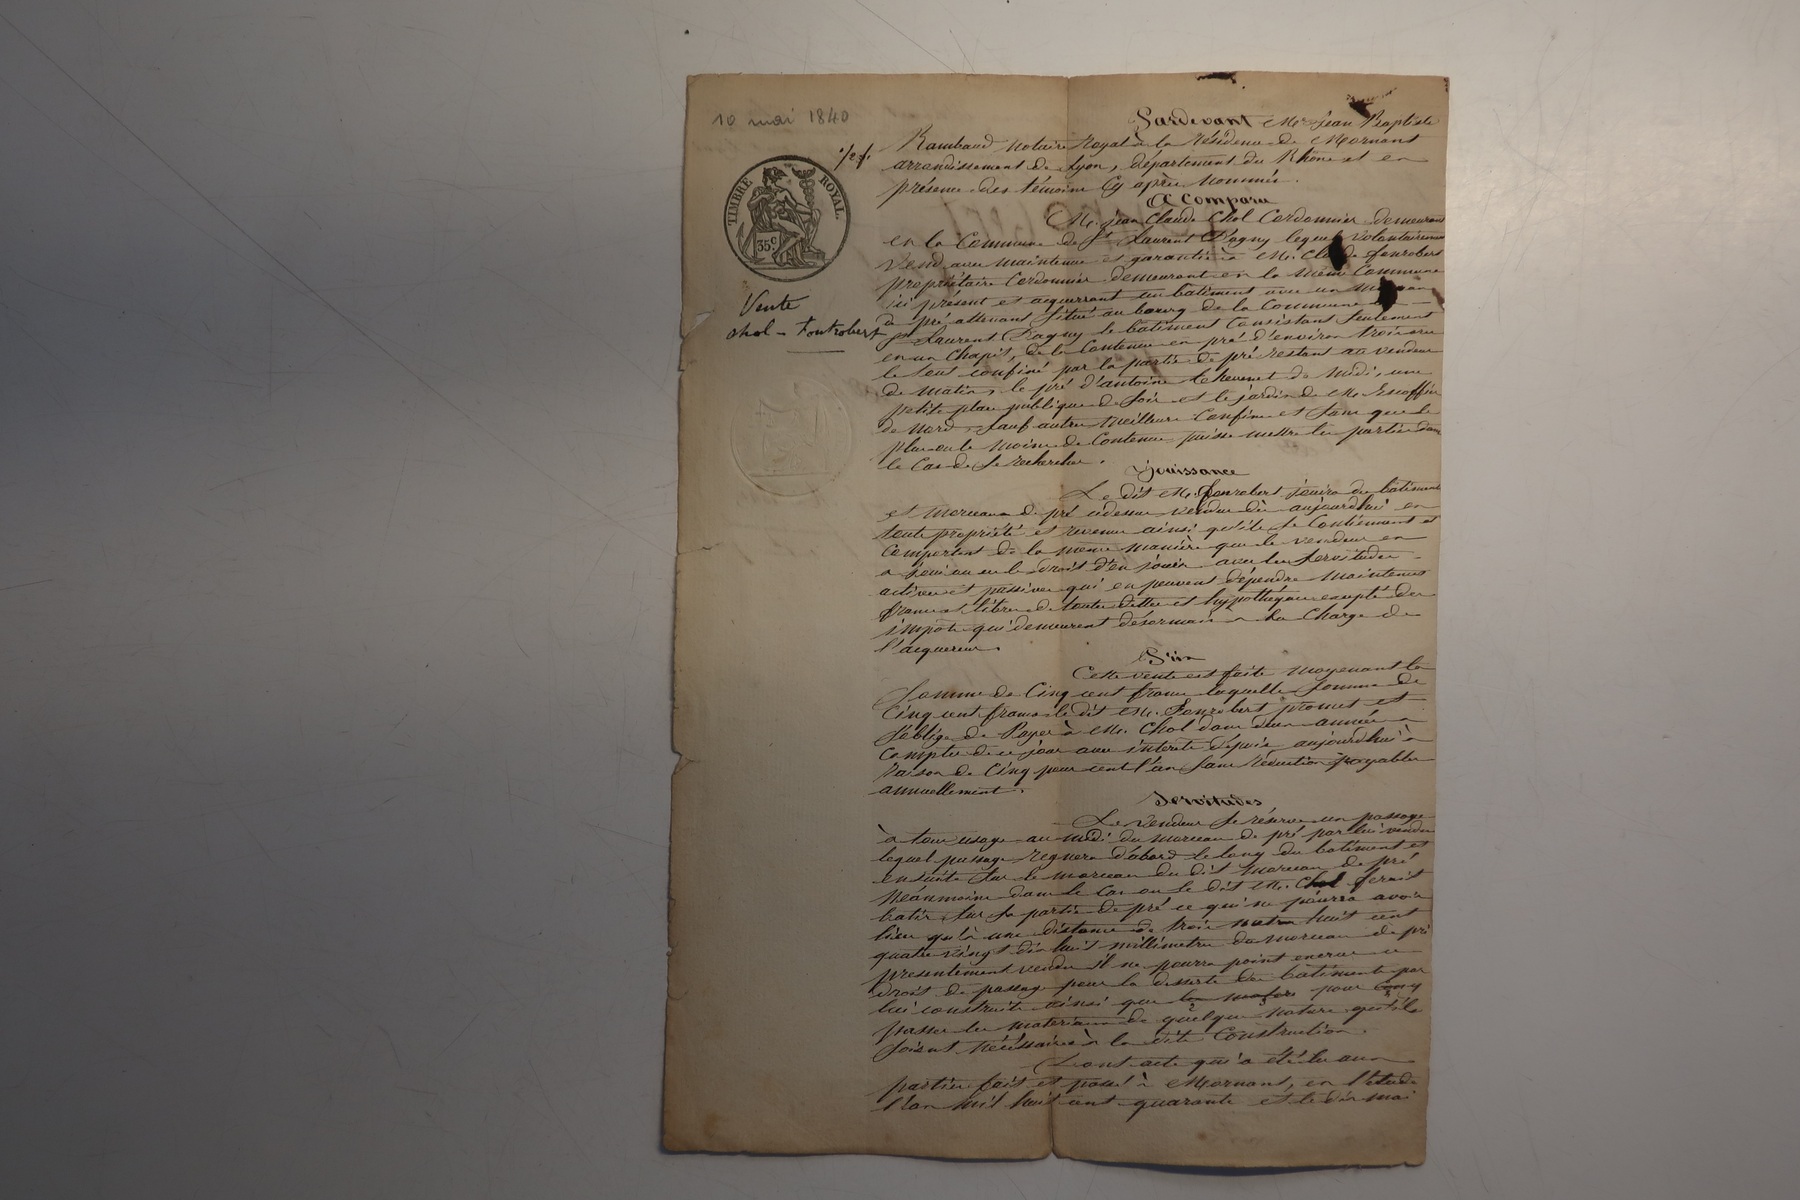 10 mai 1840
TIMBRE ROYAL.
35.c
Vente
Chol - Fontrobert
Pardevant Me Jean Baptiste
Rambaud Notaire Royal à la Résidence de Mornant
arrondissement de Lyon, département du Rhône et en
présence des témoins cy après Nommés.
A Comparu
M. jean Claude Chol Cordonnier demeurant
en la Commune de St Laurent D'agny lequel Volontairement
Vend avec maintenue et garantie à M. Claude fonrobert
propriétaire Cordonnier demeurant en la même Commune
ici présent et acquerrant un batiment avec un
de pré attenant Situé au bourg de la Commune de
St Laurent D'agny le batiment Consistant Seulement
en un Chapit, de la Contenue en pré d'environ trois ares
le tout confiné par la partie de pré restant au vendeur
de matin, le pré d'antoine Thevenet de midi, une
petite place publique de Soir et le jardin de M. Escoffier
de Nord, Sauf autres Meilleurs Confins et Sans que le
plus ou le Moins de Contenue puisse mettre les parties dans
le Cas de Se rechercher.
Jouissance
Le dit M. fonrobert jouira du bâtiment
et morceau de pré cidessus vendus dès aujourdhui en
toute propriété et revenus ainsi qu'ils Se Contiennent et
Comportent de la même manière que le vendeur en
a joui ou eu le droit d'en jouir avec les Servitudes
actives et passives qui en peuvent dépendre Maintenus
francs et libres de toutes dettes et hypothèques excepté des
impots qui demeurent désormais à la Charge de
l'acquereur.
Prix
Cette vente est faite Moyenant la
Somme de Cinq cent francs laquelle Somme de
Cinq cent francs le dit M. Fonrobert promet et
S'oblige de Payer à M. Chol dans deux années à
Compter de ce jour avec intérêts depuis aujourdhui à
Raison de Cinq pour cent l'an Sans Réduction payables
annuellement.
Servitudes
Le Vendeur Se réserve un passage
à tous usages au midi du morceau de pré par lui vendu
lequel passage regnera d'abord le long du batiment et
ensuite Sur le morceau du dit morceau de pré
Néanmoins dans le Cas où le dit M. Chol ferait
batir Sur Sa partie de pré ce qui ne pourra avoir
lieu qu'à une distance de trois metres huit cent
quatre vingt dix huit millimetres du morceau de pré
présentement vendu il ne pourra point exercer ce
droit de passage pour la desserte des batiments par
lui construits ainsi que pour y
passer les materiaux de quelque nature qu'ils
Soient Nécéssaires à la dite Construction.
Dont acte qui a été lu aux
parties fait et passé à Mornant, en l'étude
l'an mil huit cent quarante et le dix mai